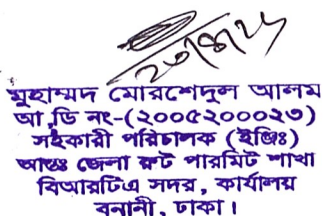 মুহাম্মদ মোরশেদুল আলম
আ.ডি নং-(২০০৫২০০০২৩)
সহকারী পরিচালক (ইঞ্জিঃ)
আন্তঃ জেলা রুট পারমিট শাখা
বিআরটিএ সদর, কার্যালয়
বনানী, ঢাকা।